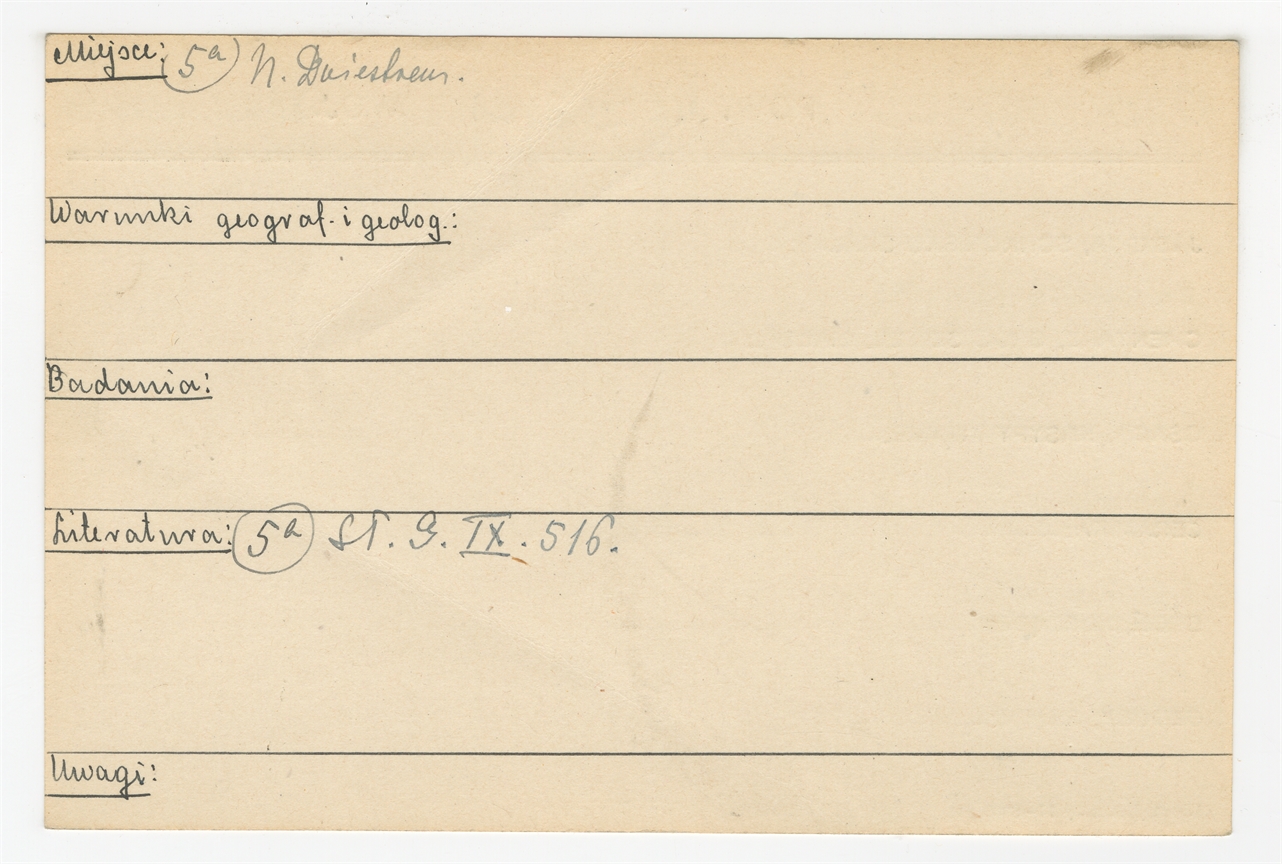 Miejsce: 5a N. Dniestrem.
Warunki geograf. i geolog.:
Badania:
Literatura: 5a Sł. G. IX. 516.
Uwagi: